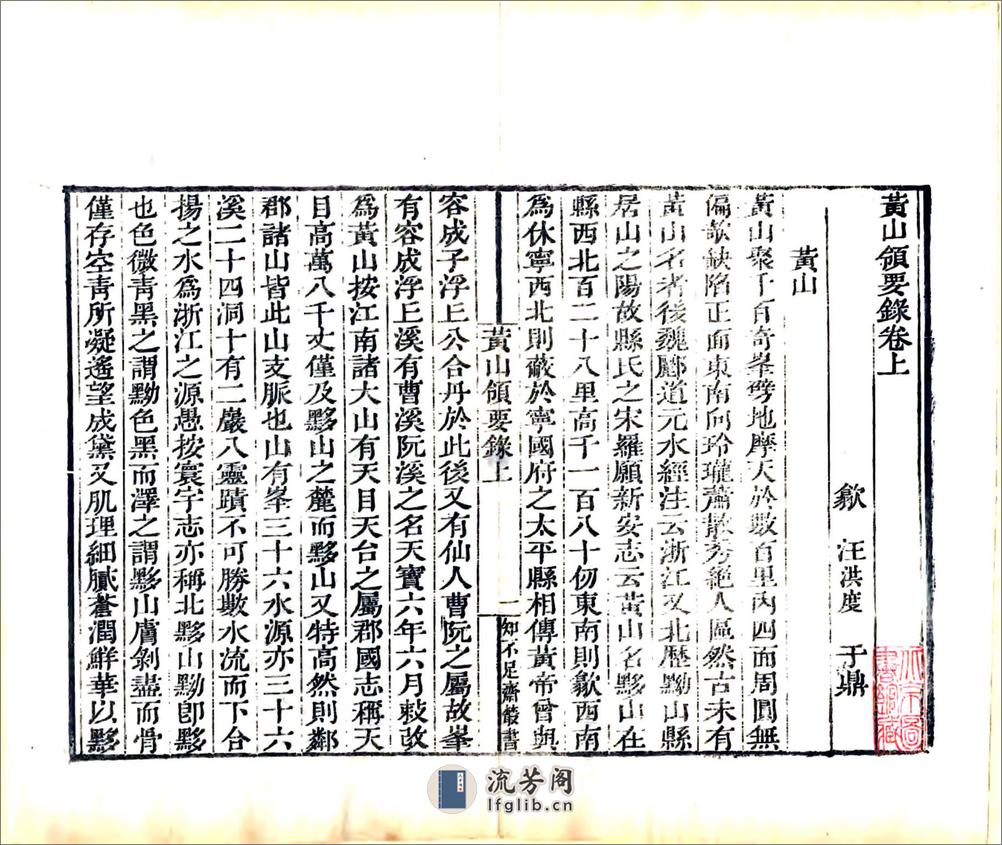 黃山領要錄卷上
歙 汪洪度 于鼎
黃山
黃山聚千百奇峯劈地摩天於數百里內四面周圓無
偏欹缺陷正面東南向玲瓏蕭散秀絕人區然古未有
黃山名者後魏酈道元水經注云浙江又北歷黝山縣
居山之陽故縣氏之宋羅願新安志云黃山名黟山在
縣西北百二十八里高千一百八十仞東南則歙西南
為休寧西北則蔽於寧國府之太平縣相傳黃帝曾與
黃山領要錄上 一 知不足齋叢書
容成子浮丘公合丹於此後又有仙人曹阮之屬故峯
有容成浮丘溪有曹溪阮溪之名天寶六年六月敕改
為黃山按江南諸大山有天目天台之屬郡國志稱天
目高萬八千丈僅及黟山之麓而黟山又特高然則鄰
郡諸山皆此山支脈也山有峯三十六水源亦三十六
溪二十四洞十有二巖八靈蹟不可勝數水流而下合
揚之水為浙江之源愚按寰宇志亦稱北黟山黝即黟
也色微青黑之謂黝色黑而澤之謂黟山膚剝盡而骨
僅存空青所凝遙望成黛又肌理細膩蒼潤鮮華以黟
流芳阁
lfglib.cn